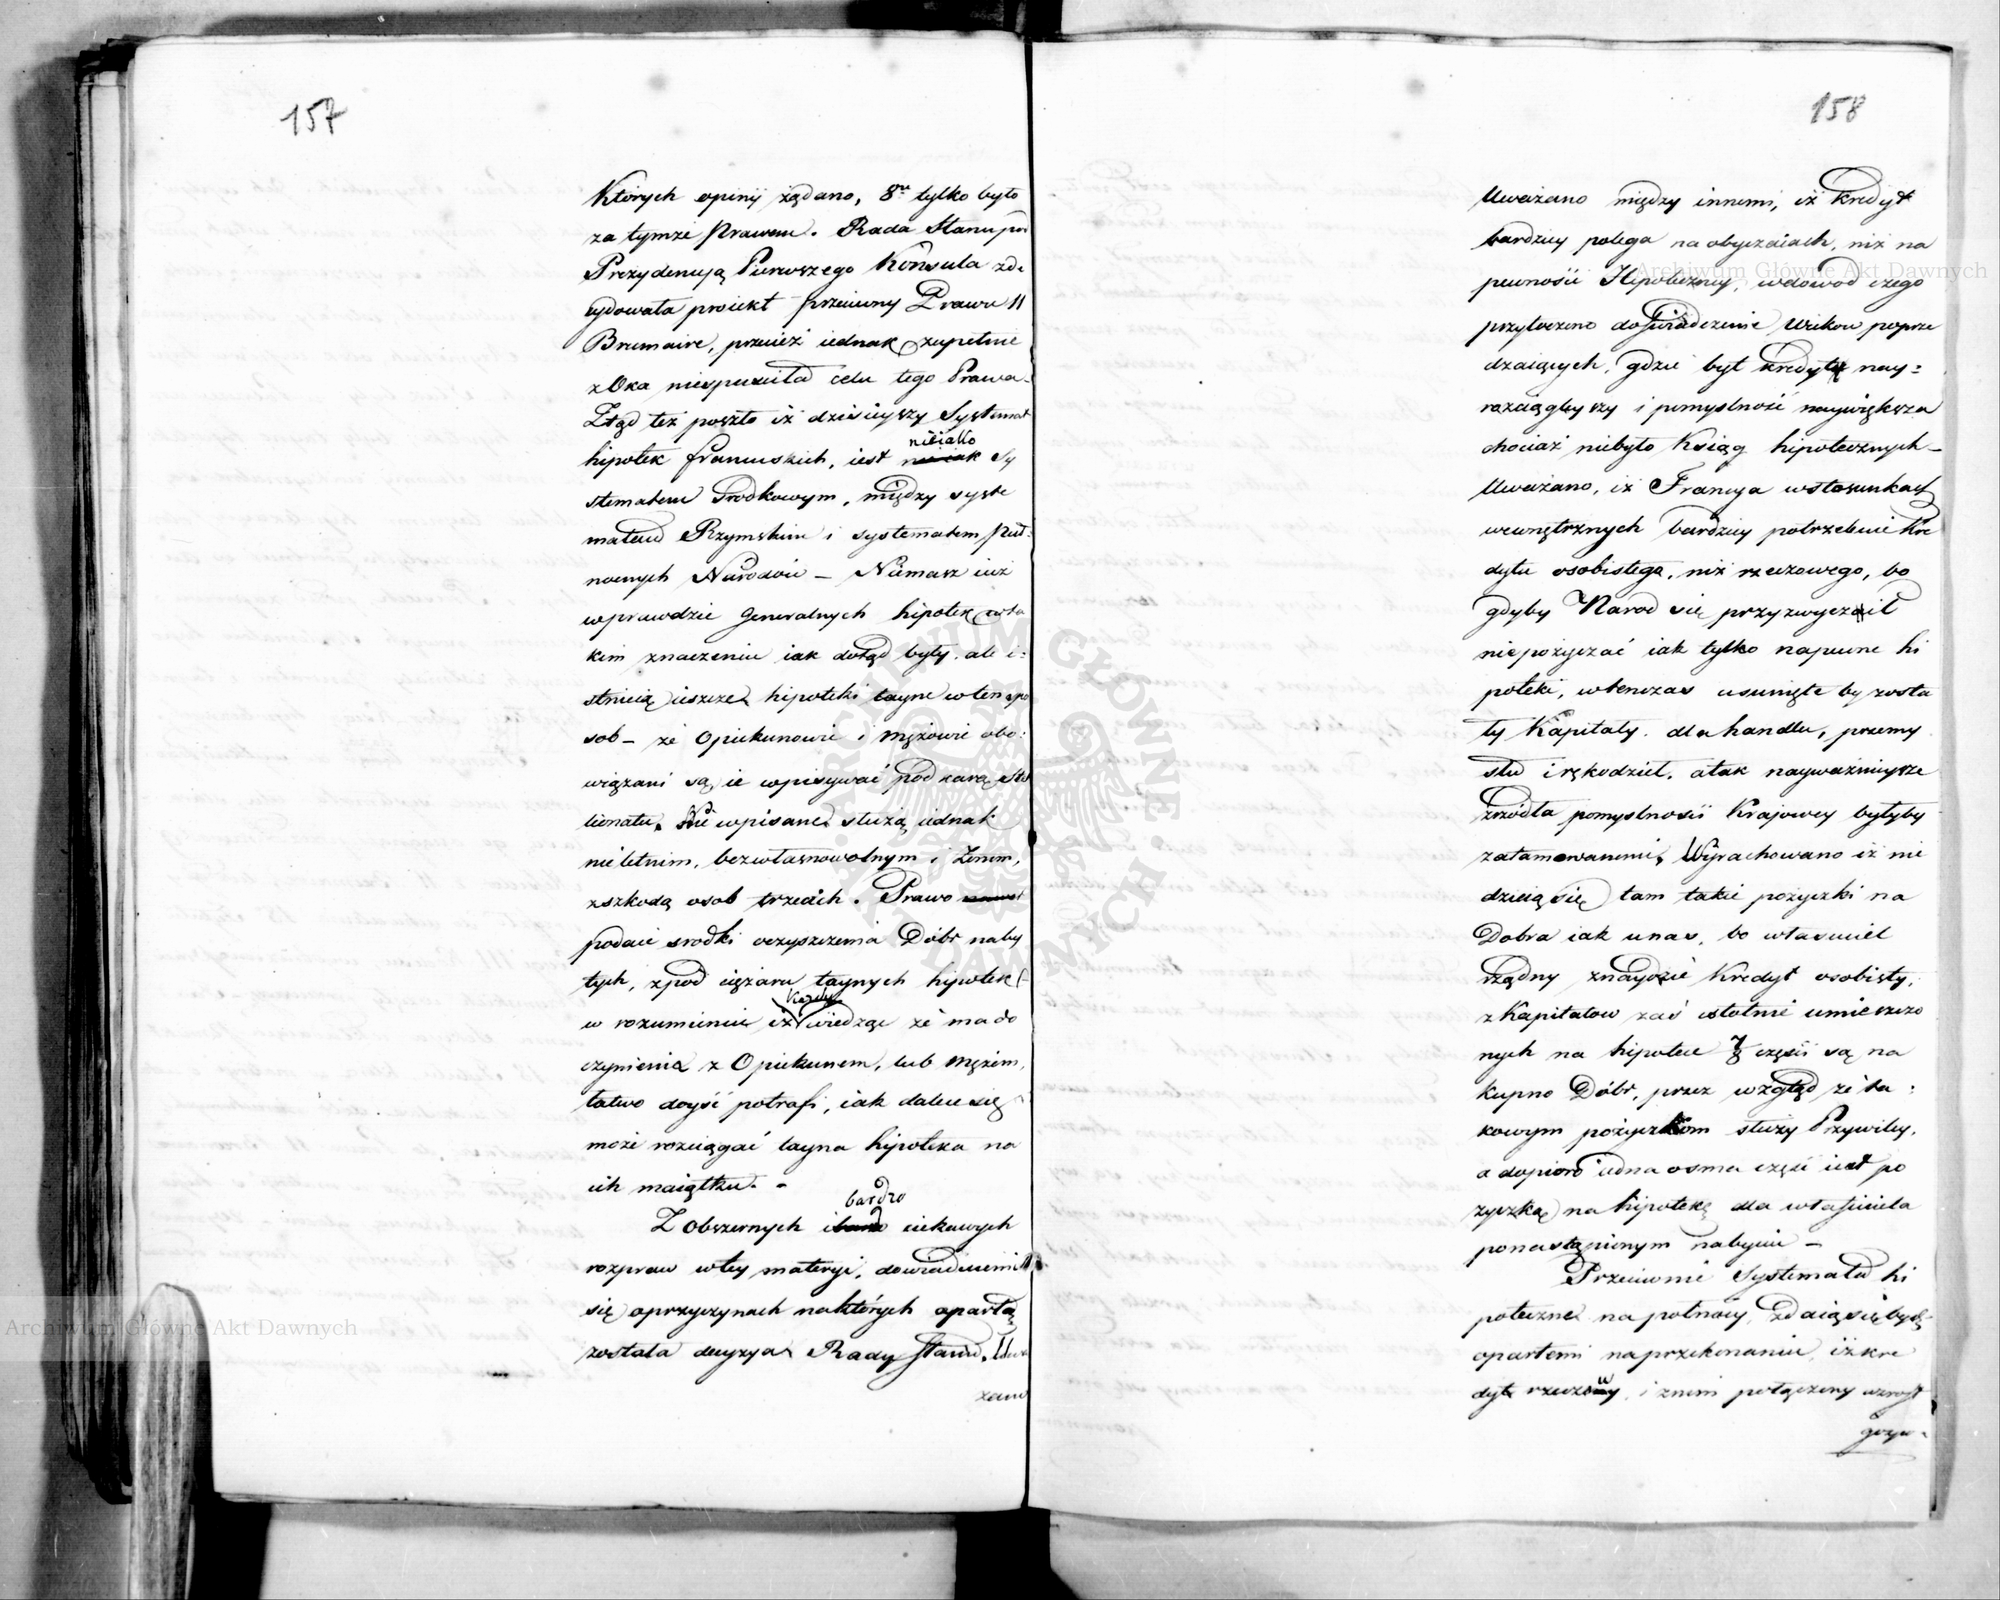 157
Których opinij żądano, 8m tylko było
za tymze Prawem. Rada Stanu pod
Prezydencyą Pierwszego Konsula zde
cydowała proiekt przeciwny Prawu 11
Brumaire, przecież iednak zupełnie
z Oka niespuściła celu tego Prawa.
Ztąd też poszło iż dzisieyszy Systemat
hipotek francuskich, iest nieiako Sy
stematem Srodkowym, między syste
matem Rzymskim i systematem Pół-
nocnych Narodów — Niemasz iuż
wprawdzie Generalnych hipotek wta
kim znaczeniu iak dotąd były, ale i-
stnieią ieszcze hipoteki tayne wten spo
sob — że Opiekunowie i Mężowie obo-
wiązani są ie wpisywać pod karą Stel
lionatu. Nie wpisane służą iednak
nieletnim, bezwłasnowolnym i Żonom,
zszkodą osob trzecich. Prawo
podaie srodki oczyszczenia Dóbr naby
tych, zpod ciężaru taynych hipotek
w rozumieniu iż Każdy wiedząc że ma do
czynienia z Opiekunem, lub Mężem,
łatwo doyść potrafi, iak dalece się
może rozciągać tayna hipoteka na
ich maiątku. -
Z Obszernych i bardzo ciekawych
rozpraw wtey materyi, dowiaduiemy
się oprzyczynach naktórych oparta
została decyzya Rady Stanu. Uwa
żano
158
Uważano między innemi, iż Kredyt
bardziey polega na obyczaiach, niż na
pewności Hipoteczney, wdowod czego
przytoczono doświadczenie Wiekow poprze
dzaiących, gdzie był Kredyt nay-
rozciągleyszy i pomyslność naywiększa
chociaż niebyło Ksiąg hipotecznych —
Uważano, iż Francya wstosunkach
wewnętrznych bardziey potrzebuie Kre
dytu osobistego, niż rzeczowego, bo
gdyby Narod się przyzwyczaił
niepożyczać iak tylko napewne hi
poteki, wtenczas usunięte by zosta
ły Kapitały dla handlu, przemy
słu i rękodzieł, atak nayważnieysze
źrzódła pomyslności Kraiowey byłyby
zatamowanemi, Wyrachowano iż nie
dzieią się tam takie pożyczki na
Dobra iak unas, bo własciciel
rządny znaydzie Kredyt osobisty,
z Kapitałow zaś istotnie umieszczo
nych na hipotece 7/8 części są na
kupno Dóbr, przez wzgląd że ta-
kowym pożyczkom służy Przywiley,
a dopiero iedna osma część iest po
życzką na hipotekę dla własciciela
ponastąpionym nabyciu —
Przeciwnie Systemata hi
poteczne na północy, zdaią się bydź
opartemi naprzekonaniu, iż kre
dyt rzeczowy, i znim połączony wzrost